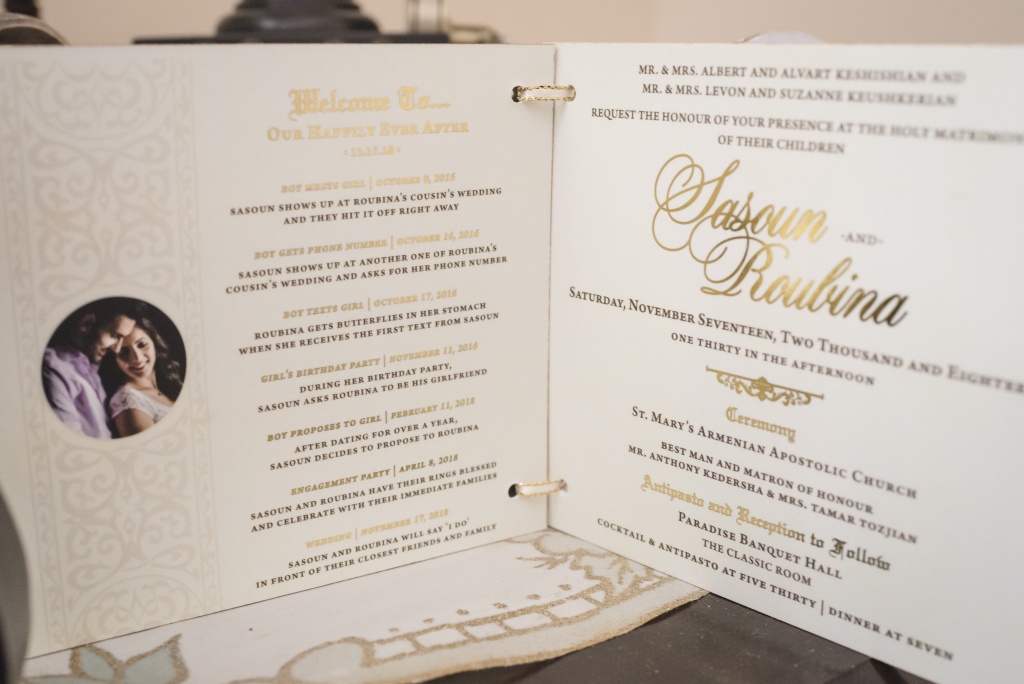 Welcome To...
OUR HAPPILY EVER AFTER
- 11.17.18 -
BOY MEETS GIRL | OCTOBER 9, 2016
SASOUN SHOWS UP AT ROUBINA'S COUSIN'S WEDDING
AND THEY HIT IT OFF RIGHT AWAY
BOY GETS PHONE NUMBER | OCTOBER 16, 2016
SASOUN SHOWS UP AT ANOTHER ONE OF ROUBINA'S
COUSIN'S WEDDING AND ASKS FOR HER PHONE NUMBER
BOY TEXTS GIRL | OCTOBER 17, 2016
ROUBINA GETS BUTTERFLIES IN HER STOMACH
WHEN SHE RECEIVES THE FIRST TEXT FROM SASOUN
GIRL'S BIRTHDAY PARTY | NOVEMBER 11, 2016
DURING HER BIRTHDAY PARTY,
SASOUN ASKS ROUBINA TO BE HIS GIRLFRIEND
BOY PROPOSES TO GIRL | FEBRUARY 11, 2018
AFTER DATING FOR OVER A YEAR,
SASOUN DECIDES TO PROPOSE TO ROUBINA
ENGAGEMENT PARTY | APRIL 8, 2018
SASOUN AND ROUBINA HAVE THEIR RINGS BLESSED
AND CELEBRATE WITH THEIR IMMEDIATE FAMILIES
WEDDING | NOVEMBER 17, 2018
SASOUN AND ROUBINA WILL SAY 'I DO'
IN FRONT OF THEIR CLOSEST FRIENDS AND FAMILY
MR. & MRS. ALBERT AND ALVART KESHISHIAN AND
MR. & MRS. LEVON AND SUZANNE KEUSHKERIAN
REQUEST THE HONOUR OF YOUR PRESENCE AT THE HOLY MATRIMON
OF THEIR CHILDREN
Sasoun -AND-
Roubina
SATURDAY, NOVEMBER SEVENTEEN, TWO THOUSAND AND EIGHTEE
ONE THIRTY IN THE AFTERNOON
Ceremony
ST. MARY'S ARMENIAN APOSTOLIC CHURCH
BEST MAN AND MATRON OF HONOUR
MR. ANTHONY KEDERSHA & MRS. TAMAR TOZJIAN
Antipasto and Reception to Follow
PARADISE BANQUET HALL
THE CLASSIC ROOM
COCKTAIL & ANTIPASTO AT FIVE THIRTY | DINNER AT SEVEN